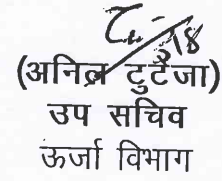 (अनिल टुटेजा)
उप सचिव
ऊर्जा विभाग